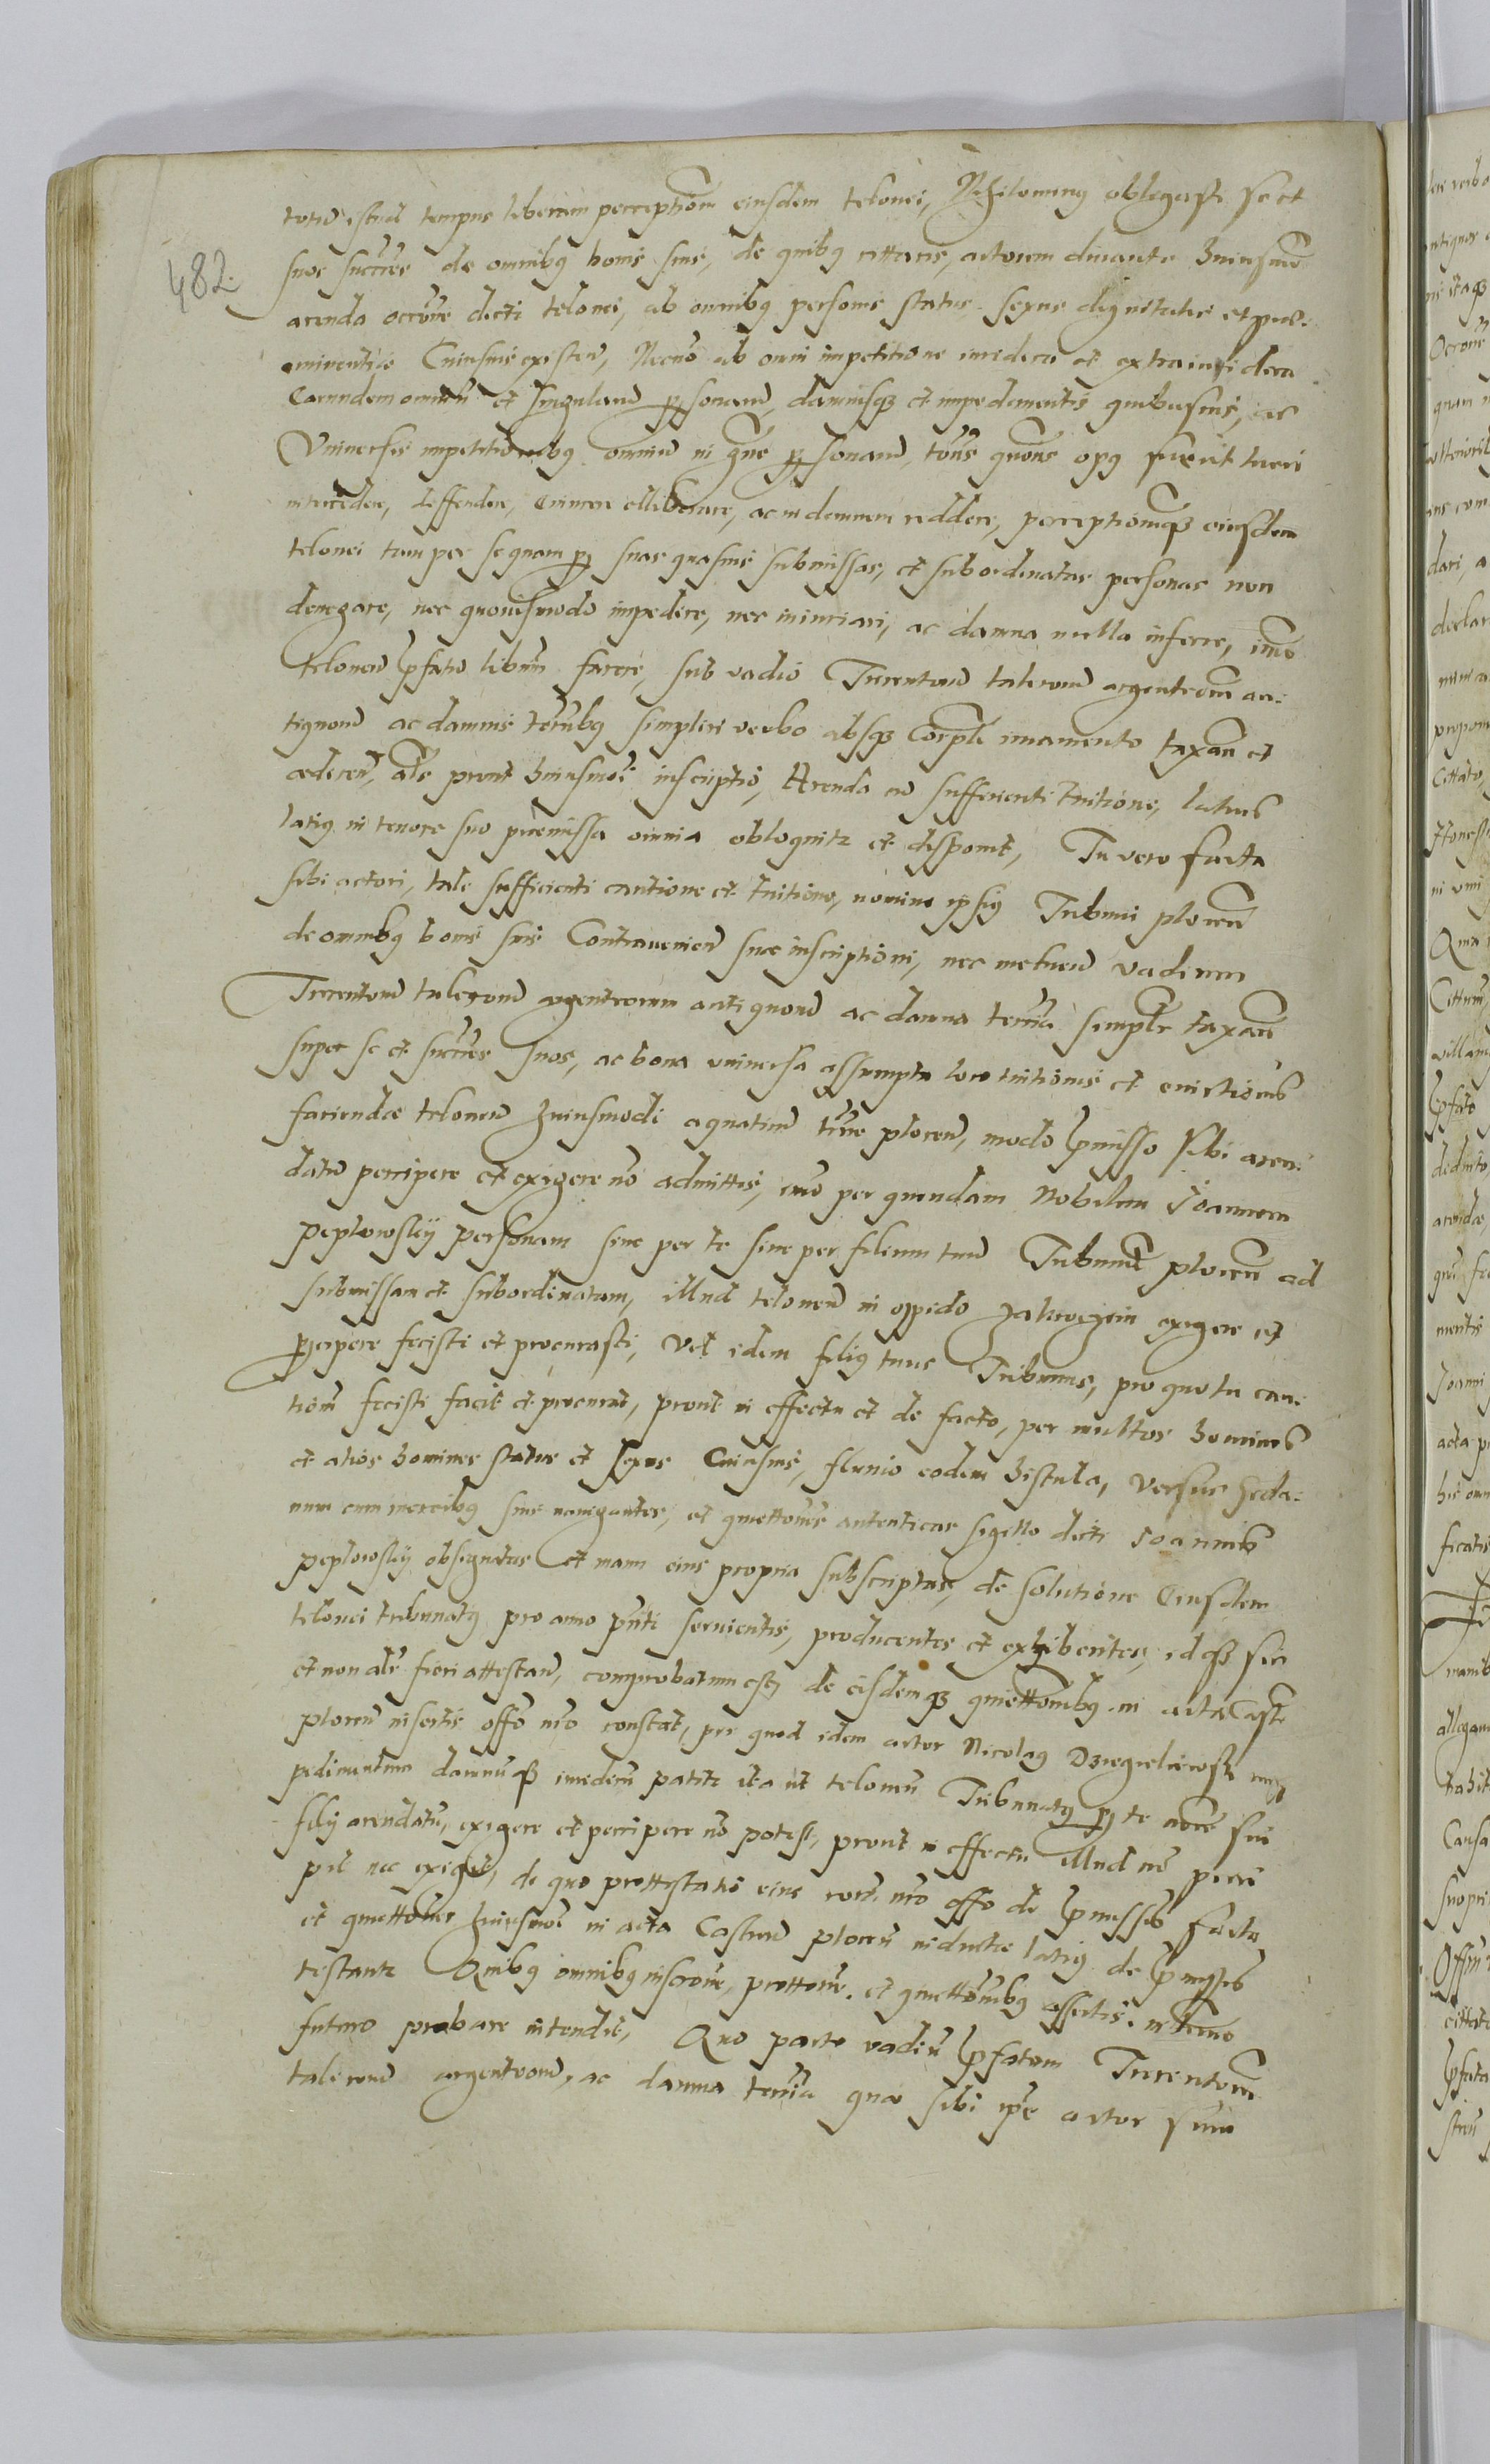 482
totu istud tempus liberam perceptiom eiusdem telonei, Nihilominus obligasti se et
suos succres de omnibus bonis suis, de quibus cittaris, actorem durante huiusmo
arenda occroe dicti telonei, ab omnibus personis status sexus dignitatis et prae
eminentiae Cuiusuis existen, Necno ab omni impetitione iuridica et extraiuridica
Earundem omniu et singularu personaru, damnisque et impedimentis quibusuis, ac
Vniuersis impetitionibus omniu in gne personaru, toties quoties opus fuerit tueri
intercedere, deffendere, euincere elliberare, ac indemnem reddere, perceptionemque eiusdem
telonei tam per se quam per suas quasuis submissas, et subordinatas personas non
denegare, nec quouismodo impedire, nec iniuriari, ac damna nulla inferre, imo
teloneu pfatu liberu facere, sub vadio Trecentoru taleroru argenteoru an
tiquoru ac damnis terribus simplici verbo absque corpli iuramento taxan et
edicen, als prout huiusmoi inscriptio, Arenda cu sufficienti tuitione, latius
latius in tenore suo praemissa omnia obloquitr et disponit, Tu vero facta
sibi actori, tale sufficienti cautione et tuitione, nomine ipsius Tribuni plocen
de omnibus bonis suis Contraueniendo suae inscriptioni, nec metuen vadium
Trecentoru taleroru argenteorum antiquoru ac damna terria simplr taxan
super se et succres suos, ac bona vniuersa assumpta loco tuitionis et euictionis
faciendae teloneu huiusmodi aquaticu trrae plocen, modo pmisso sibi aren
datu percipere et exigere no admittis, imo per quendam Nobilem Joannem
Peplowskij personam siue per te siue per filium tuu Tribunu plocen ad
submissam et subordinatam, illud teloneu in oppido Zakroczim exigere et
percipere fecisti et procurasti, vel idem filius tuus Tribunus, pro quo tu cau
tiom fecisti facit et procurat, prout in effectu et de facto, per multos homines
et alios homines status et sexus Cuiusuis, fluuio eodem Vistula, versus Geda
num cum mercibus suis nauigantes, et quittoes autenticas sigillo dicti Joannis
Peplowskij obsignatas et manu eius propria subscriptas, de solutione Eiusdem
telonei tribunatus pro anno pnti seruientis, producentes et exhibentes, idque sic
et non alr fieri attestan, comprobatum est, de eisdemque quittonibus in acta castr
plocen insertis offo nro constat, per quod idem actor Nicolaus Dzięgielewski im
pedimentum damnuque inedicu patitr ita ut teloneu Tribunatus per te nore sui
filij arendatu, exigere et percipere no potest, prout in effectu illud no perci
pit nec exigit, de quo prottestatio eius cora nro offo de pmissis facta
et quittoes huiusmoi in acta Castru plocen inductae latius de pmissis
testantr Quibus omnibus inscroe, prottoe et quittonibus assertis in termo
futuro probare intendit, Quo pacto vadiu pfatum Trecentoru
taleroru argenteoru, ac damna terria quae sibi ipse actor suiu